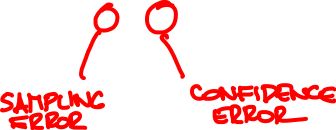 SAMPLING
ERROR
CONFIDENCE
ERROR